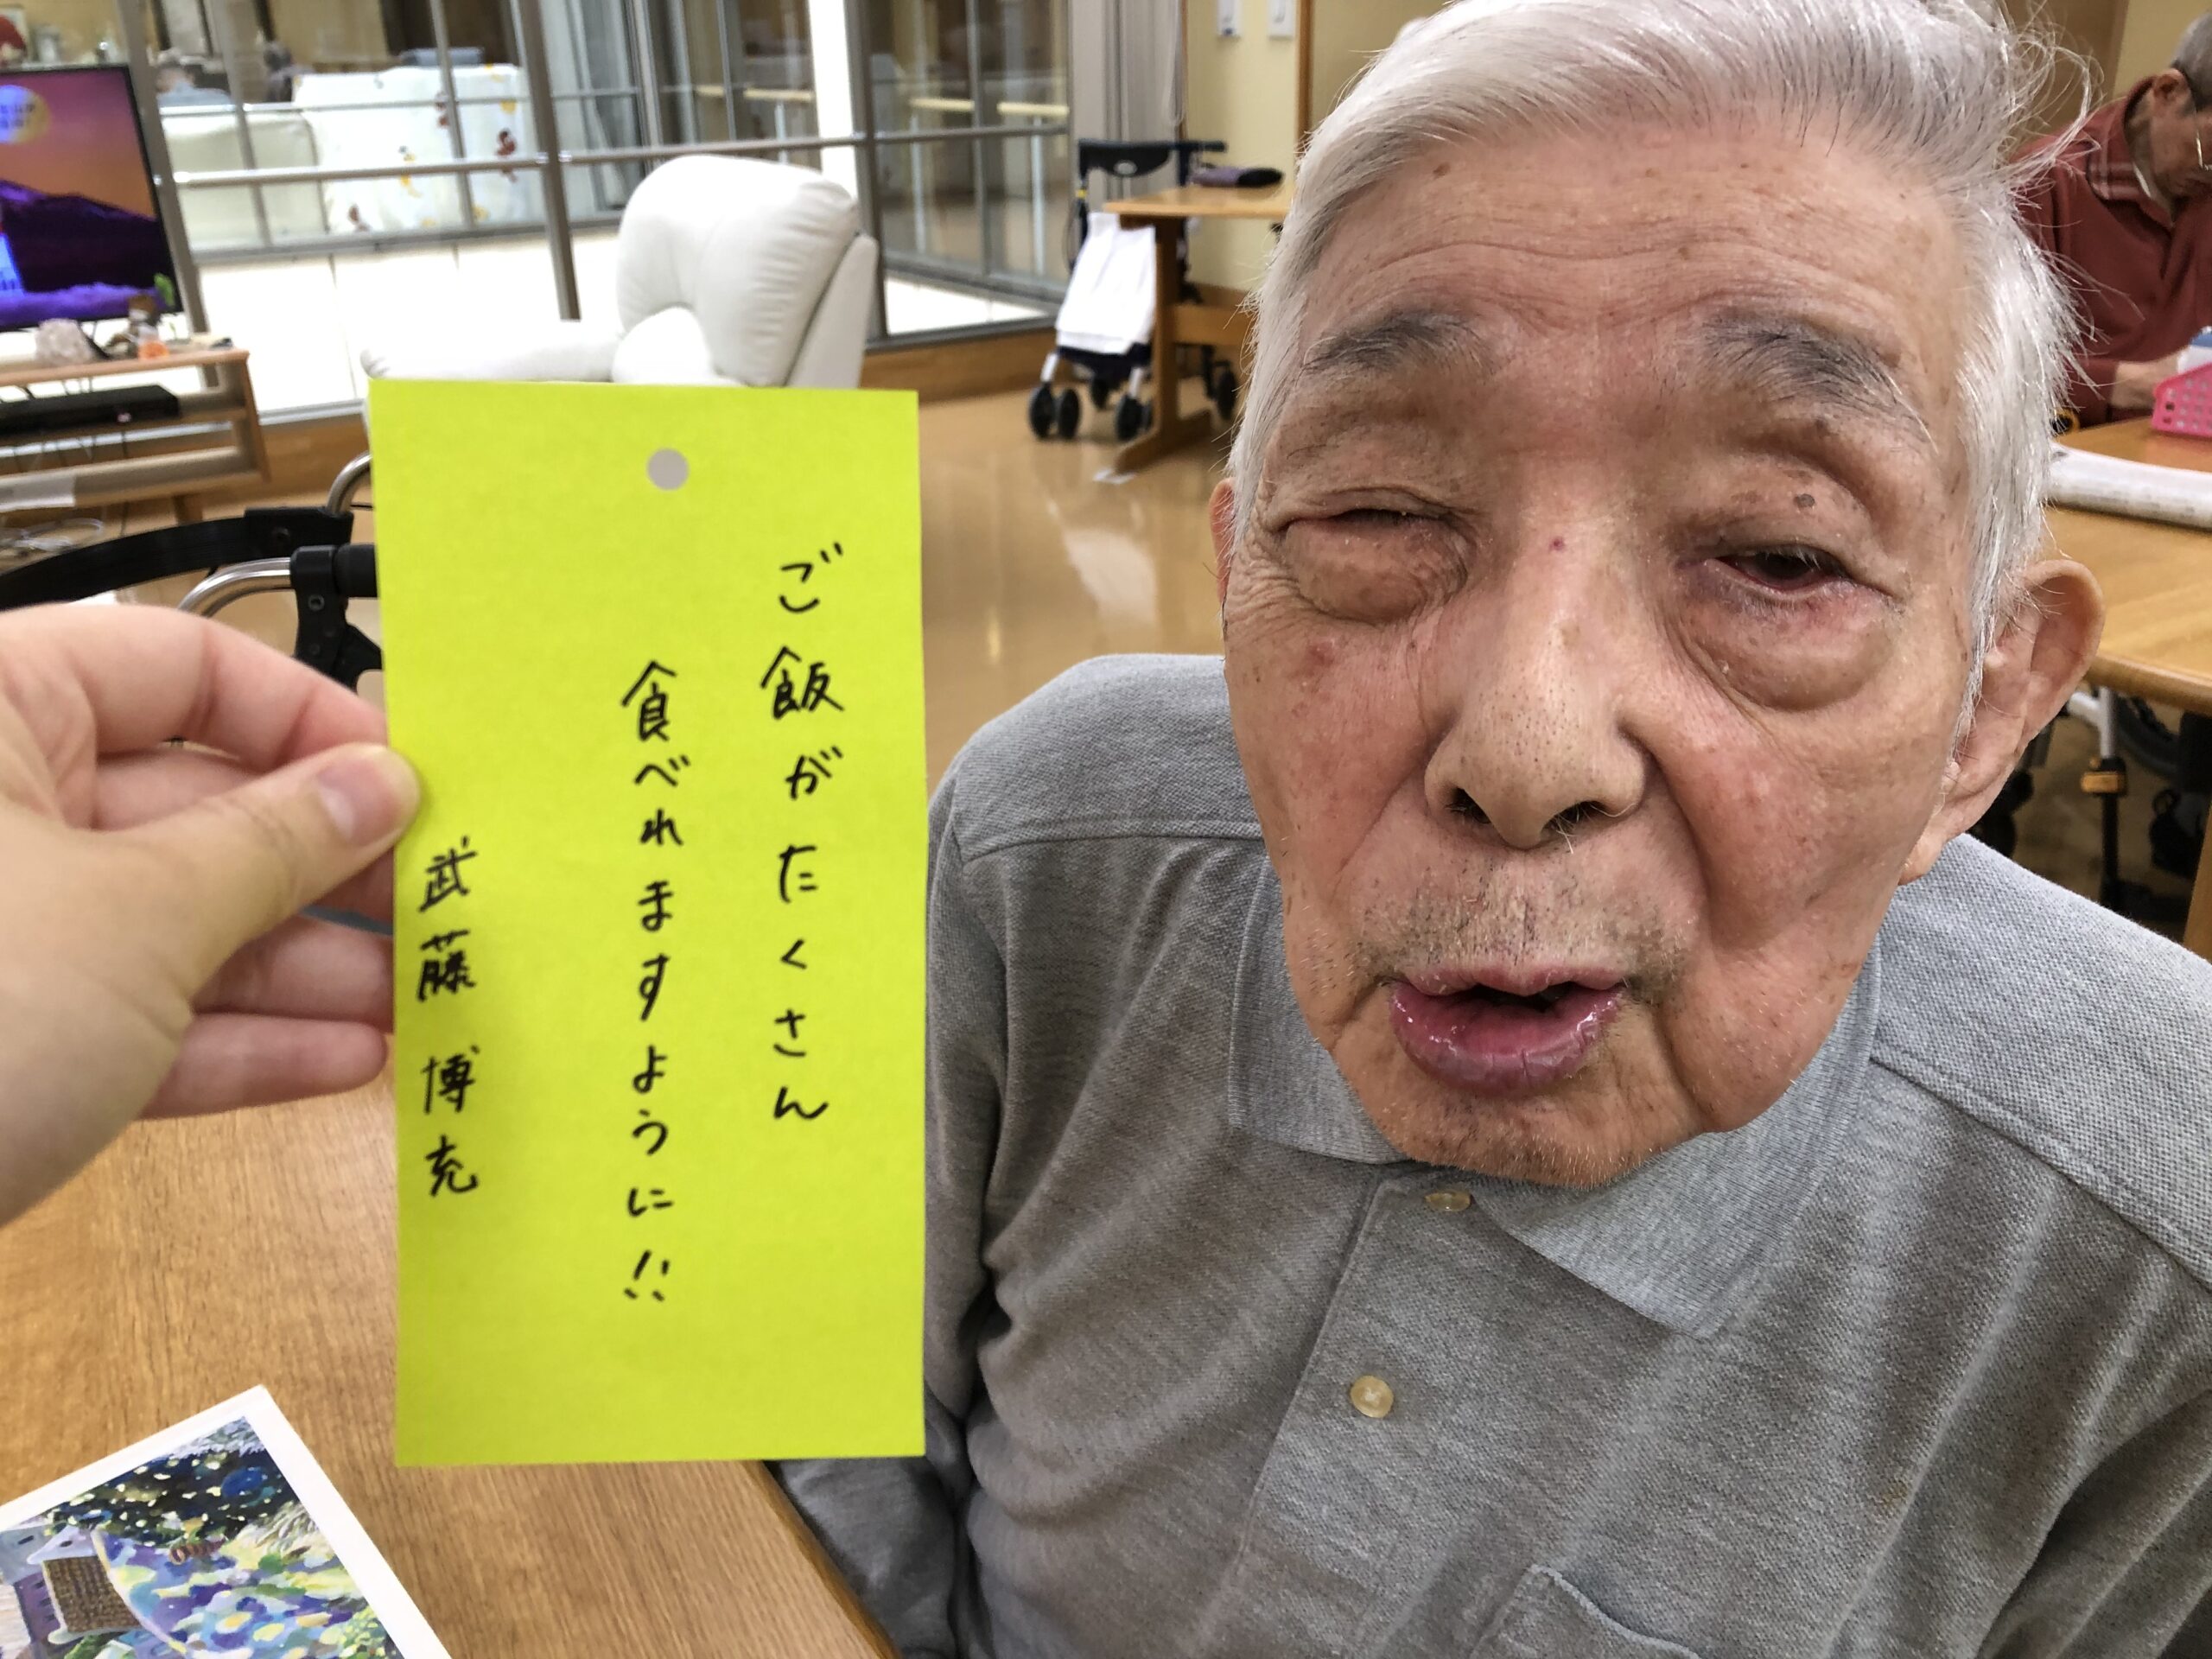 ご飯がたくさん
食べれますように!!
武藤博充